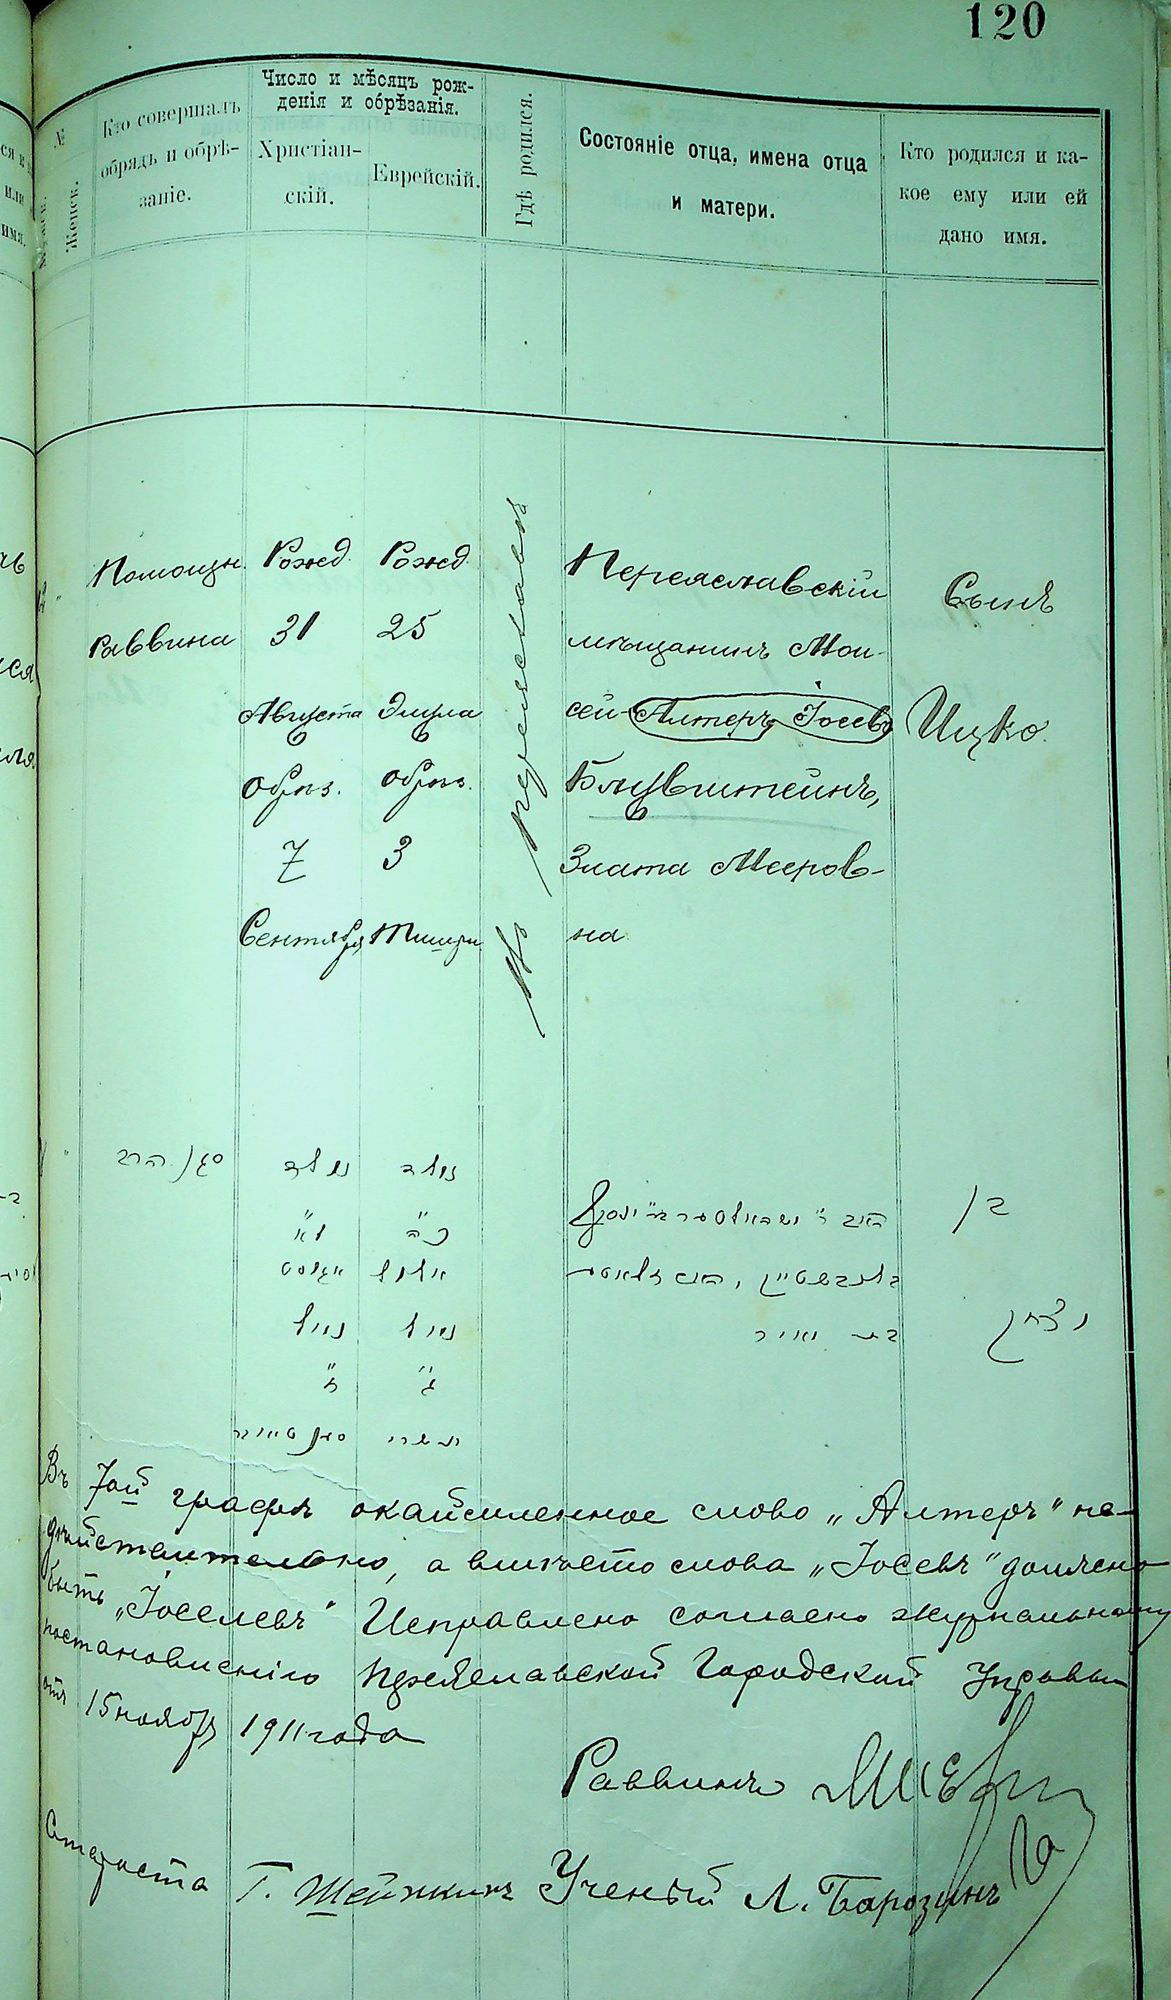 120
№
Женск.
Кто совершалъ
обрядъ и обрѣ-
заніе.
Число и мѣсяцъ рож-
денія и обрѣзанія.
Христіан-
скій.
Еврейскій.
Гдѣ родился.
Состояніе отца, имена отца
и матери.
Кто родился и ка-
кое ему или ей
дано имя.
Помощн.
раввина
Рожд
31
Августа
обрѣз.
7
Сентября
Рожд
25
Элула
обрѣз.
3
Тишри
Въ Переяславѣ
Переяславскій
мѣщанинъ Мои-
сей-Алтеръ Іосевъ
Блувштейнъ,
Злата Мееров-
на
Сынъ
Ицко
סגן הרב
נולד
ל״א
אגוסט
נימול
ז״
סעפטאבר
נולד
כ״ה
אלול
נימול
ג״
תשרי
בן
יצחק
Въ 7ой графѣ окаймленное слово „Алтеръ" не-
дѣйствительно, а вмѣсто слова „Іосевъ" должно
быть „Іоселевъ" Исправлено согласно журнальному
постановленію Переяславской Городской Управы
отъ 15 ноября 1911 года
Раввинъ
Староста Г. Шейнкинъ Ученый Л. Барозинъ